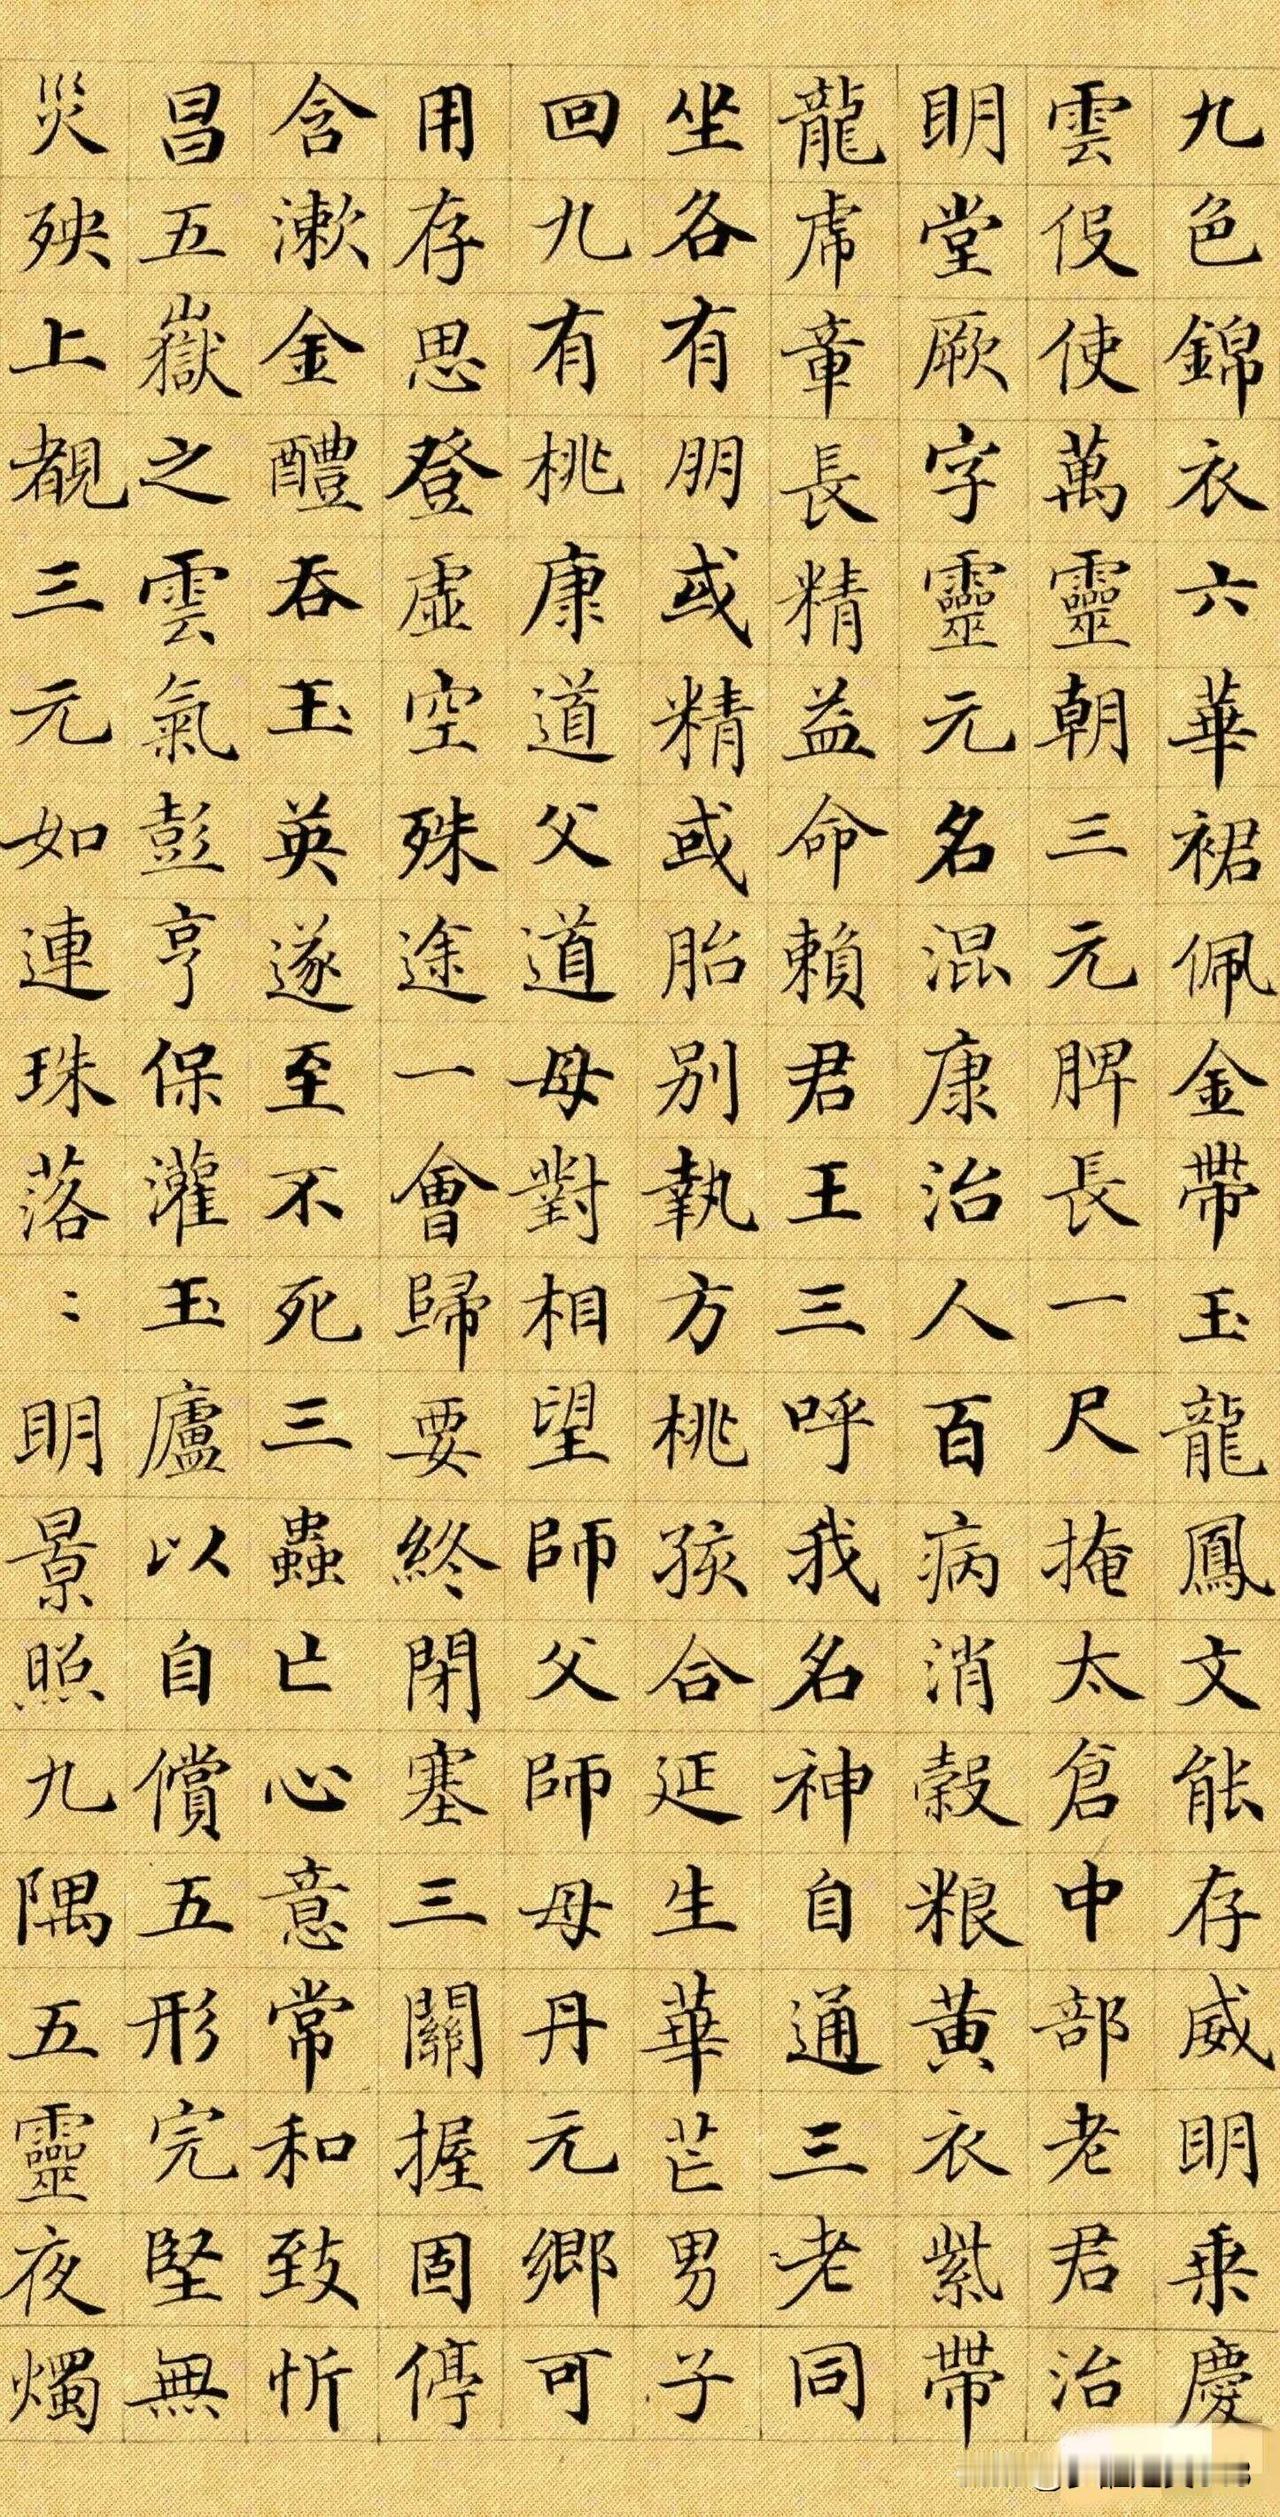 九色錦衣六華裙佩金帶玉龍鳳文能存威明乗慶
雲伇使萬靈朝三元脾長一尺掩太倉中部老君治
明堂厥字靈元名混康治人百病消穀粮黄衣紫帶
龍虎章長精益命賴君王三呼我名神自通三老同
坐各有朋或精或胎别執方桃孩合延生華芒男子
回九有桃康道父道母對相望師父師母丹元鄉可
用存思登虛空殊途一會歸要終閉塞三關握固停
含漱金醴吞玉英遂至不死三蟲亡心意常和致忻
昌五嶽之雲氣彭亨保灌玉廬以自償五形完堅無
災殃上覩三元如連珠落〻明景照九隅五靈夜燭